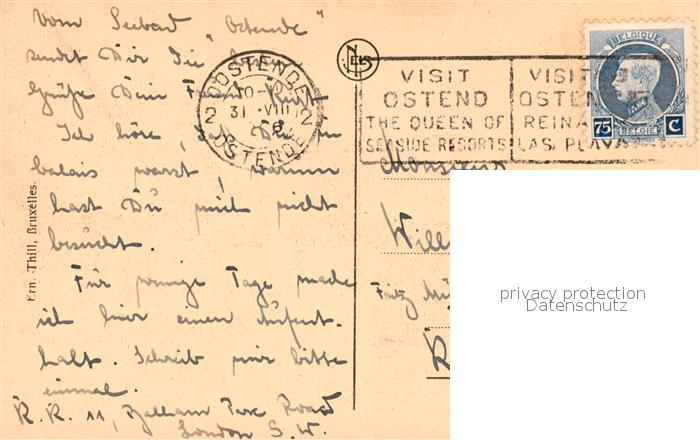 Vom Seebad "Ostende"
sendet Dir die besten
Grüße Dein Freund Kurt
Ich höre, daß Du in
warst, warum
hast Du mich nicht
besucht.
Für wenige Tage mache
ich hier einen Aufent-
halt. Schreib mir bitte
einmal.
K. R. 11, Balham Park Road
London S.W.
Ern. Thill, Bruxelles.
NELS
OOSTENDE
2 31 VIII 2
OSTENDE
VISIT
OSTEND
THE QUEEN OF
SEASIDE RESORTS
VISIT
OSTEN
REINA
LAS PLAY
BELGIQUE
75 BELGIË C
Monsieur
Will
Fritz
privacy protection
Datenschutz